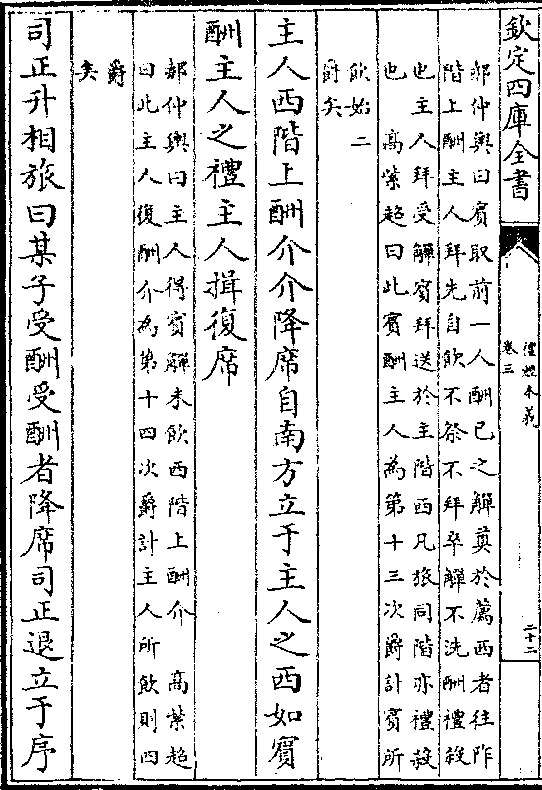 欽定四庫全書
禮經本義
卷三
二十二
郝仲輿曰賓取前一人酬已之觶奠於薦西者往阼
階上酬主人拜先自飲不祭不拜卒觶不洗酬禮殺
也主人拜受觶賓拜送於主階西凡旅同階亦禮殺
也　高紫超曰此賓酬主人為第十三次爵計賓所
飲始二
爵矣
主人西階上酬介介降席自南方立于主人之西如賓
酬主人之禮主人揖復席
郝仲輿曰主人得賓觶未飲西階上酬介　高紫超
曰此主人復酬介為第十四次爵計主人所飲則四
爵
矣
司正升相旅曰某子受酬受酬者降席司正退立于序